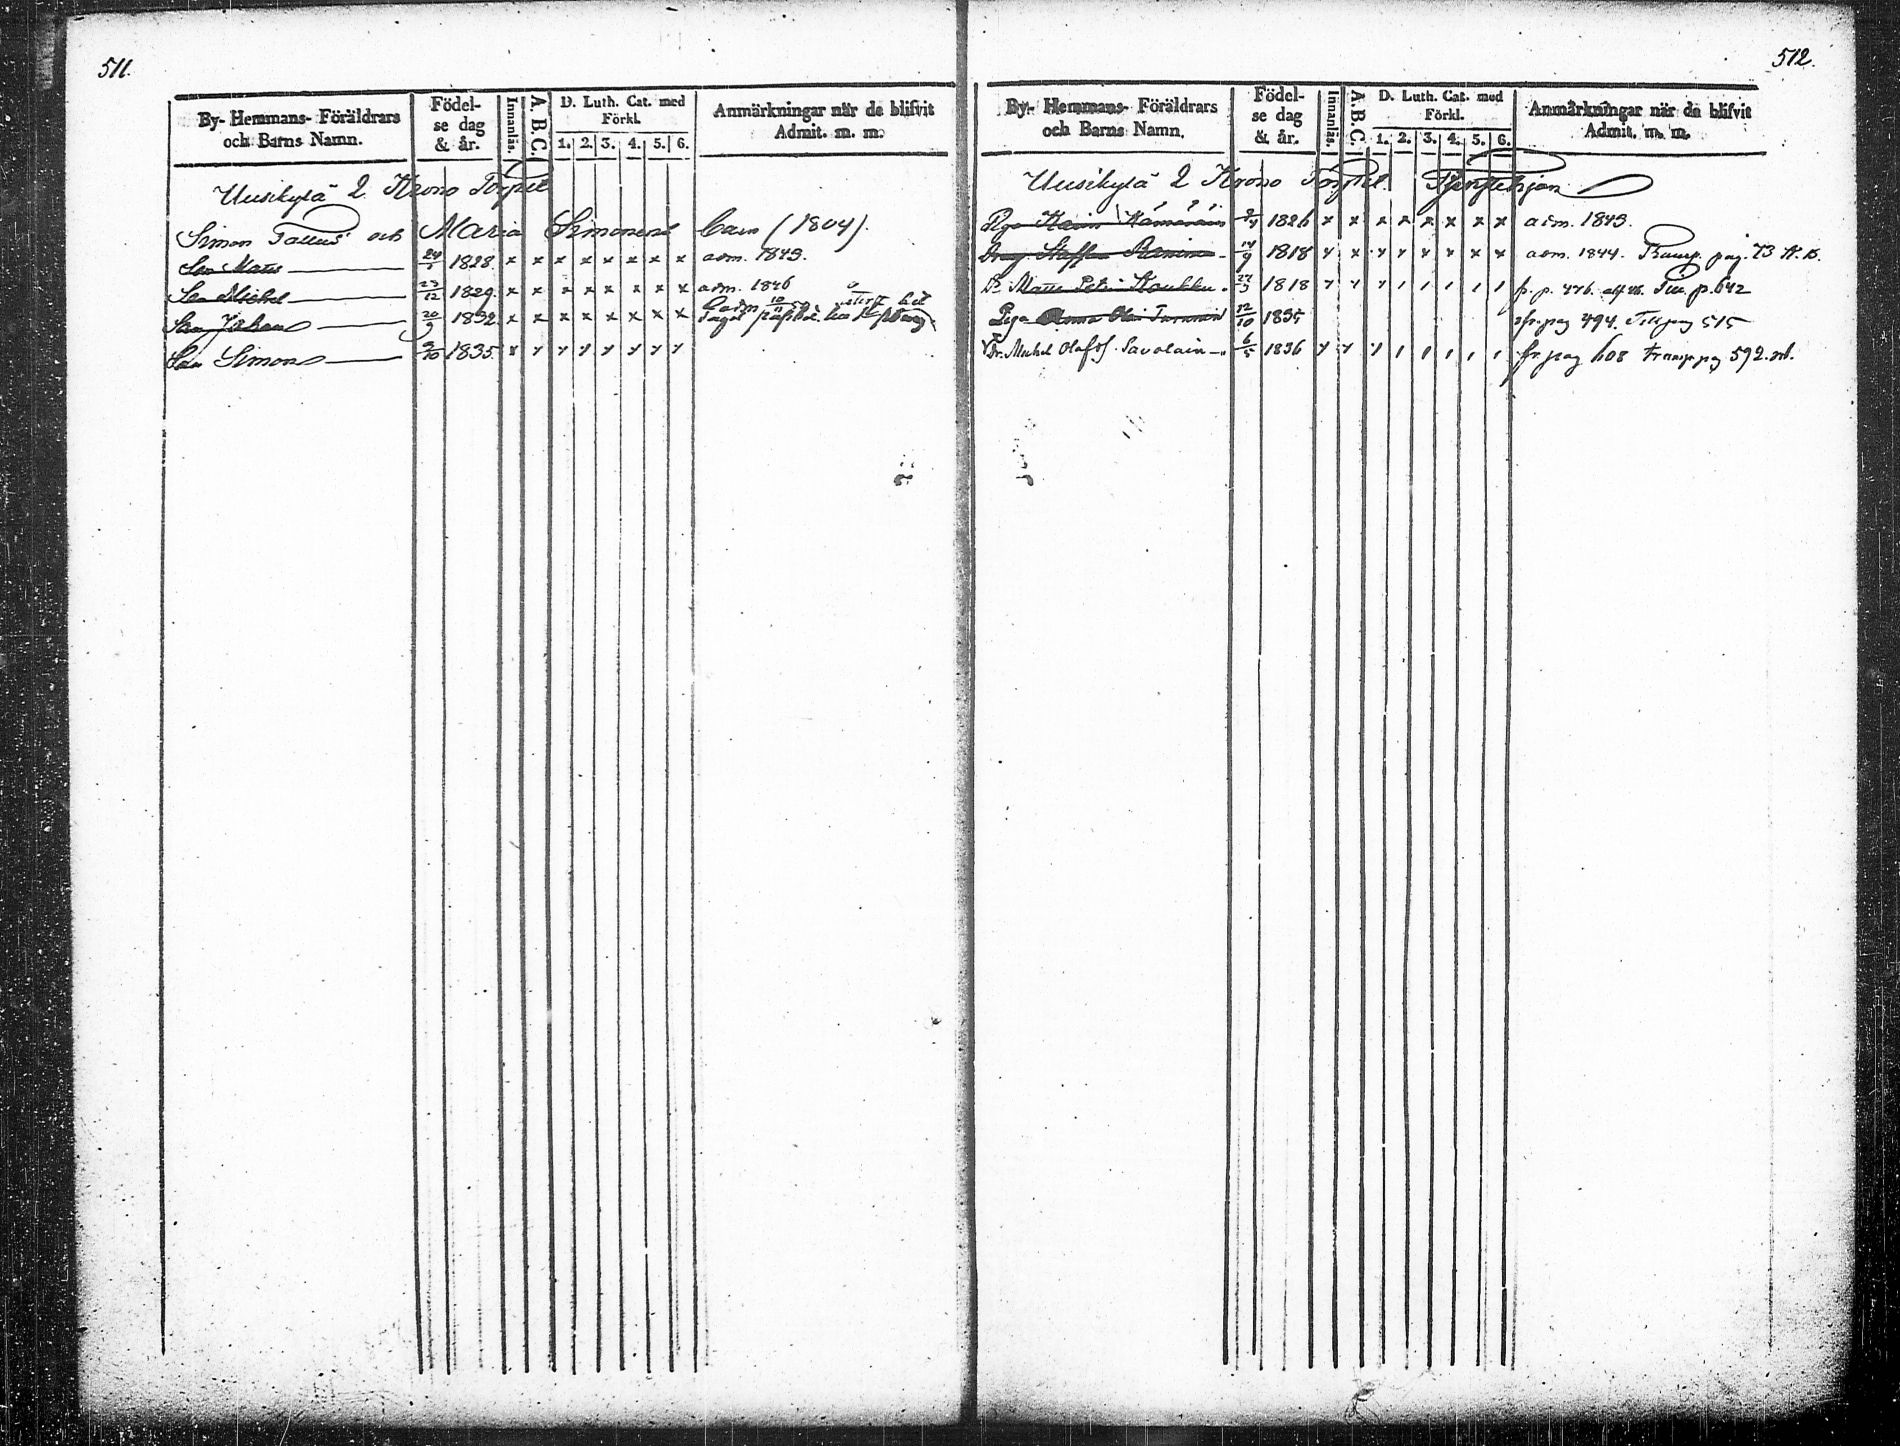 511.
By- Hemmans- Föräldrars
och Barns Namn.
Födel-
se dag
& år.
Innanläs.
A. B. C.
D. Luth. Cat. med
Förkl.
1. 2. 3. 4. 5. 6.
Anmärkningar när de blifvit
Admit. m. m.
Uusikylä 2 Krono Torpet
Simon Tallus och Maria Simonens barn (1804).
Son Matts 1828. x x x x x x x x adm. 1843.
Son Michel 23/12 1829. x x x x x x x x adm. 1846
Son Johan 20/9 1832 x x x x x x x x
Son Simon 1835 y y y y y y y y
512.
By- Hemmans- Föräldrars
och Barns Namn.
Födel-
se dag
& år.
Innanläs.
A. B. C.
D. Luth. Cat. med
Förkl.
1. 2. 3. 4. 5. 6.
Anmärkningar när de blifvit
Admit. m. m.
Uusikylä 2 Krono Torpet Tjenstehjon
Piga Karin 1826 x x x x x x x x adm. 1843.
Dreng Staffan 14/9 1818 y x x y y x x x adm. 1844. Transp. pag. 73
Dr. Matts Petri 27/3 1818 y y y 1 1 1 1 1 fr. p. 476. Till p. 642
Piga Anna Olai 12/10 1835 fr. pag 494. Till pag 515
Dr. Michel Olafsf. Savolain 6/5 1836 y y y 1 1 1 1 1 fr. pag 608 Transp. pag 592.